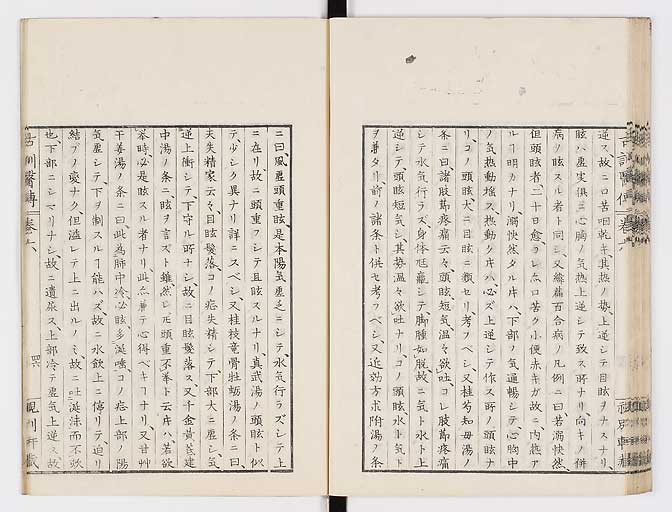 逆ス故ニ口苦咽乾キ其熱ノ勢上逆シテ目眩ヲナスナリ、
眩ハ虚実俱ニ心胸ノ気熱上逆シテ致ス所ナリ向キノ併
病ノ眩スル者ト同シ又線葫百合病ノ凡例ニ曰若溺快然
但頭眩者二十日愈コレ亦口苦ク小便赤キガ故ニ内熱ア
ルヿ明カナリ溺快然タル片ハ下部ノ気通暢シテ心胸中
ノ気熱動揺ス熱動ク片ハ必ズ上逆シテ作ス所ノ頭眩ナ
リコノ頭眩大ニ目眩ニ類セリ考フベシ又桂芍知毋湯ノ
条ニ曰諸肢節疼痛云々頭眩短気温々欲吐コレ肢節疼痛
シテ水気行ラズ身体尫羸シテ脚腫如脱故ニ気ト水ト上
逆シテ頭眩短気シ其勢温々欲吐ナリコノ頭眩水ト気ト
ヲ兼タリ前ノ諸条ト併セ考フベシ又近効方朮附湯ノ条
ニ曰風虚頭重眩是本陽気虚乏ニシテ水気行ラズシテ上
ニ在リ故ニ頭重フシテ且眩スルナリ真武湯ノ頭眩ト似
テ少シク異ナリ詳ニスベシ又桂枝竜骨牡蛎湯ノ条ニ曰
夫失精家云々目眩髮落コノ症失精シテ下部大ニ虚シ気
逆上衝シテ下守ル所ナシ故ニ目眩髮落ス又千金黄芪建
中湯ノ条ニ眩ヲ言ズト雖然シ𪜈頭重不挙ト云片ハ若欲
挙時必是眩スル者ナリ此亦兼テ心得ベキヿナリ又甘艸
干姜湯ノ条ニ曰此為肺中冷必眩多涎唾コノ症上部ノ陽
気虚シテ下ヲ制スルヿ能ハズ故ニ水飲上ニ停リテ迫リ
結ブノ変ナク但溢レテ上ニ出ルノミ故ニ吐涎沫而不欬
也下部ニシマリナシ故ニ遺尿ス上部冷テ虚気上逆ス故
巻六
四六